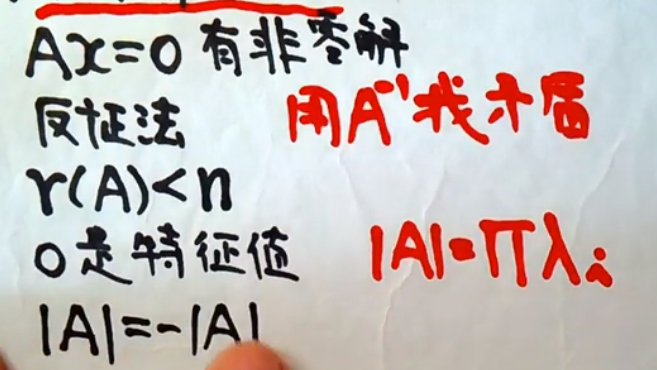 Ax=0 有非零解
反证法 用A⁻¹找矛盾
r(A)<n
0是特征值 |A|=∏λᵢ
|A|=-|A|